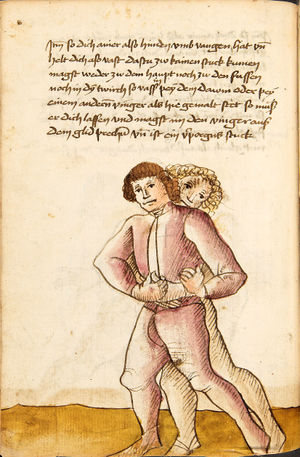 Itm so dich ainer also hinden umb vangen hat vn
helt dich also vast dastu zw kainen stuck kumen
magst weder zw dem haupt noch zw den fussen
noch in dy twirch so vass pey dem dawm oder pey
einem andern vinger als hie gemalt stet so mus
er dich lassen vnd magst im den vinger aus
dem glid prechn vn ist ein stuck